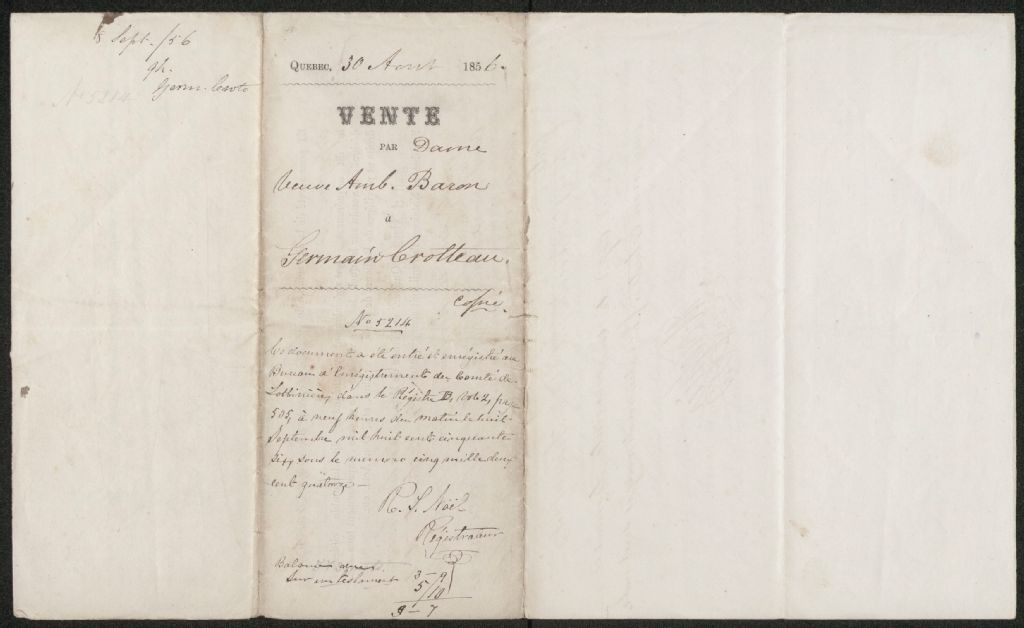 8 Sept. /56
9h.
Germ. Croto
No 5214
QUEBEC, 30 Aout 1856.
VENTE
PAR Dame
Veuve Amb. Baron
à
Germain Crotteau.
copié.
No 5214
Ce document a été entré et enrégistré au
Bureau d'Enrégistrement du Comté de
Lotbinière, dans le Régitre B, Vol 2, pe
505, à neuf heures du matin le huit
Septembre mil huit cent cinquante
six, sous le numero cinq mille deux
cent quatorze —
R. S. Noël
Régistrateur
Balance
sur un testament 3 - 9
5/10
9 - 7